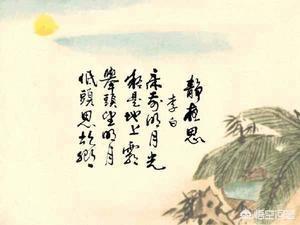 静夜思
李白
床前明月光
疑是地上霜
舉頭望明月
低頭思故鄉
悟空问答